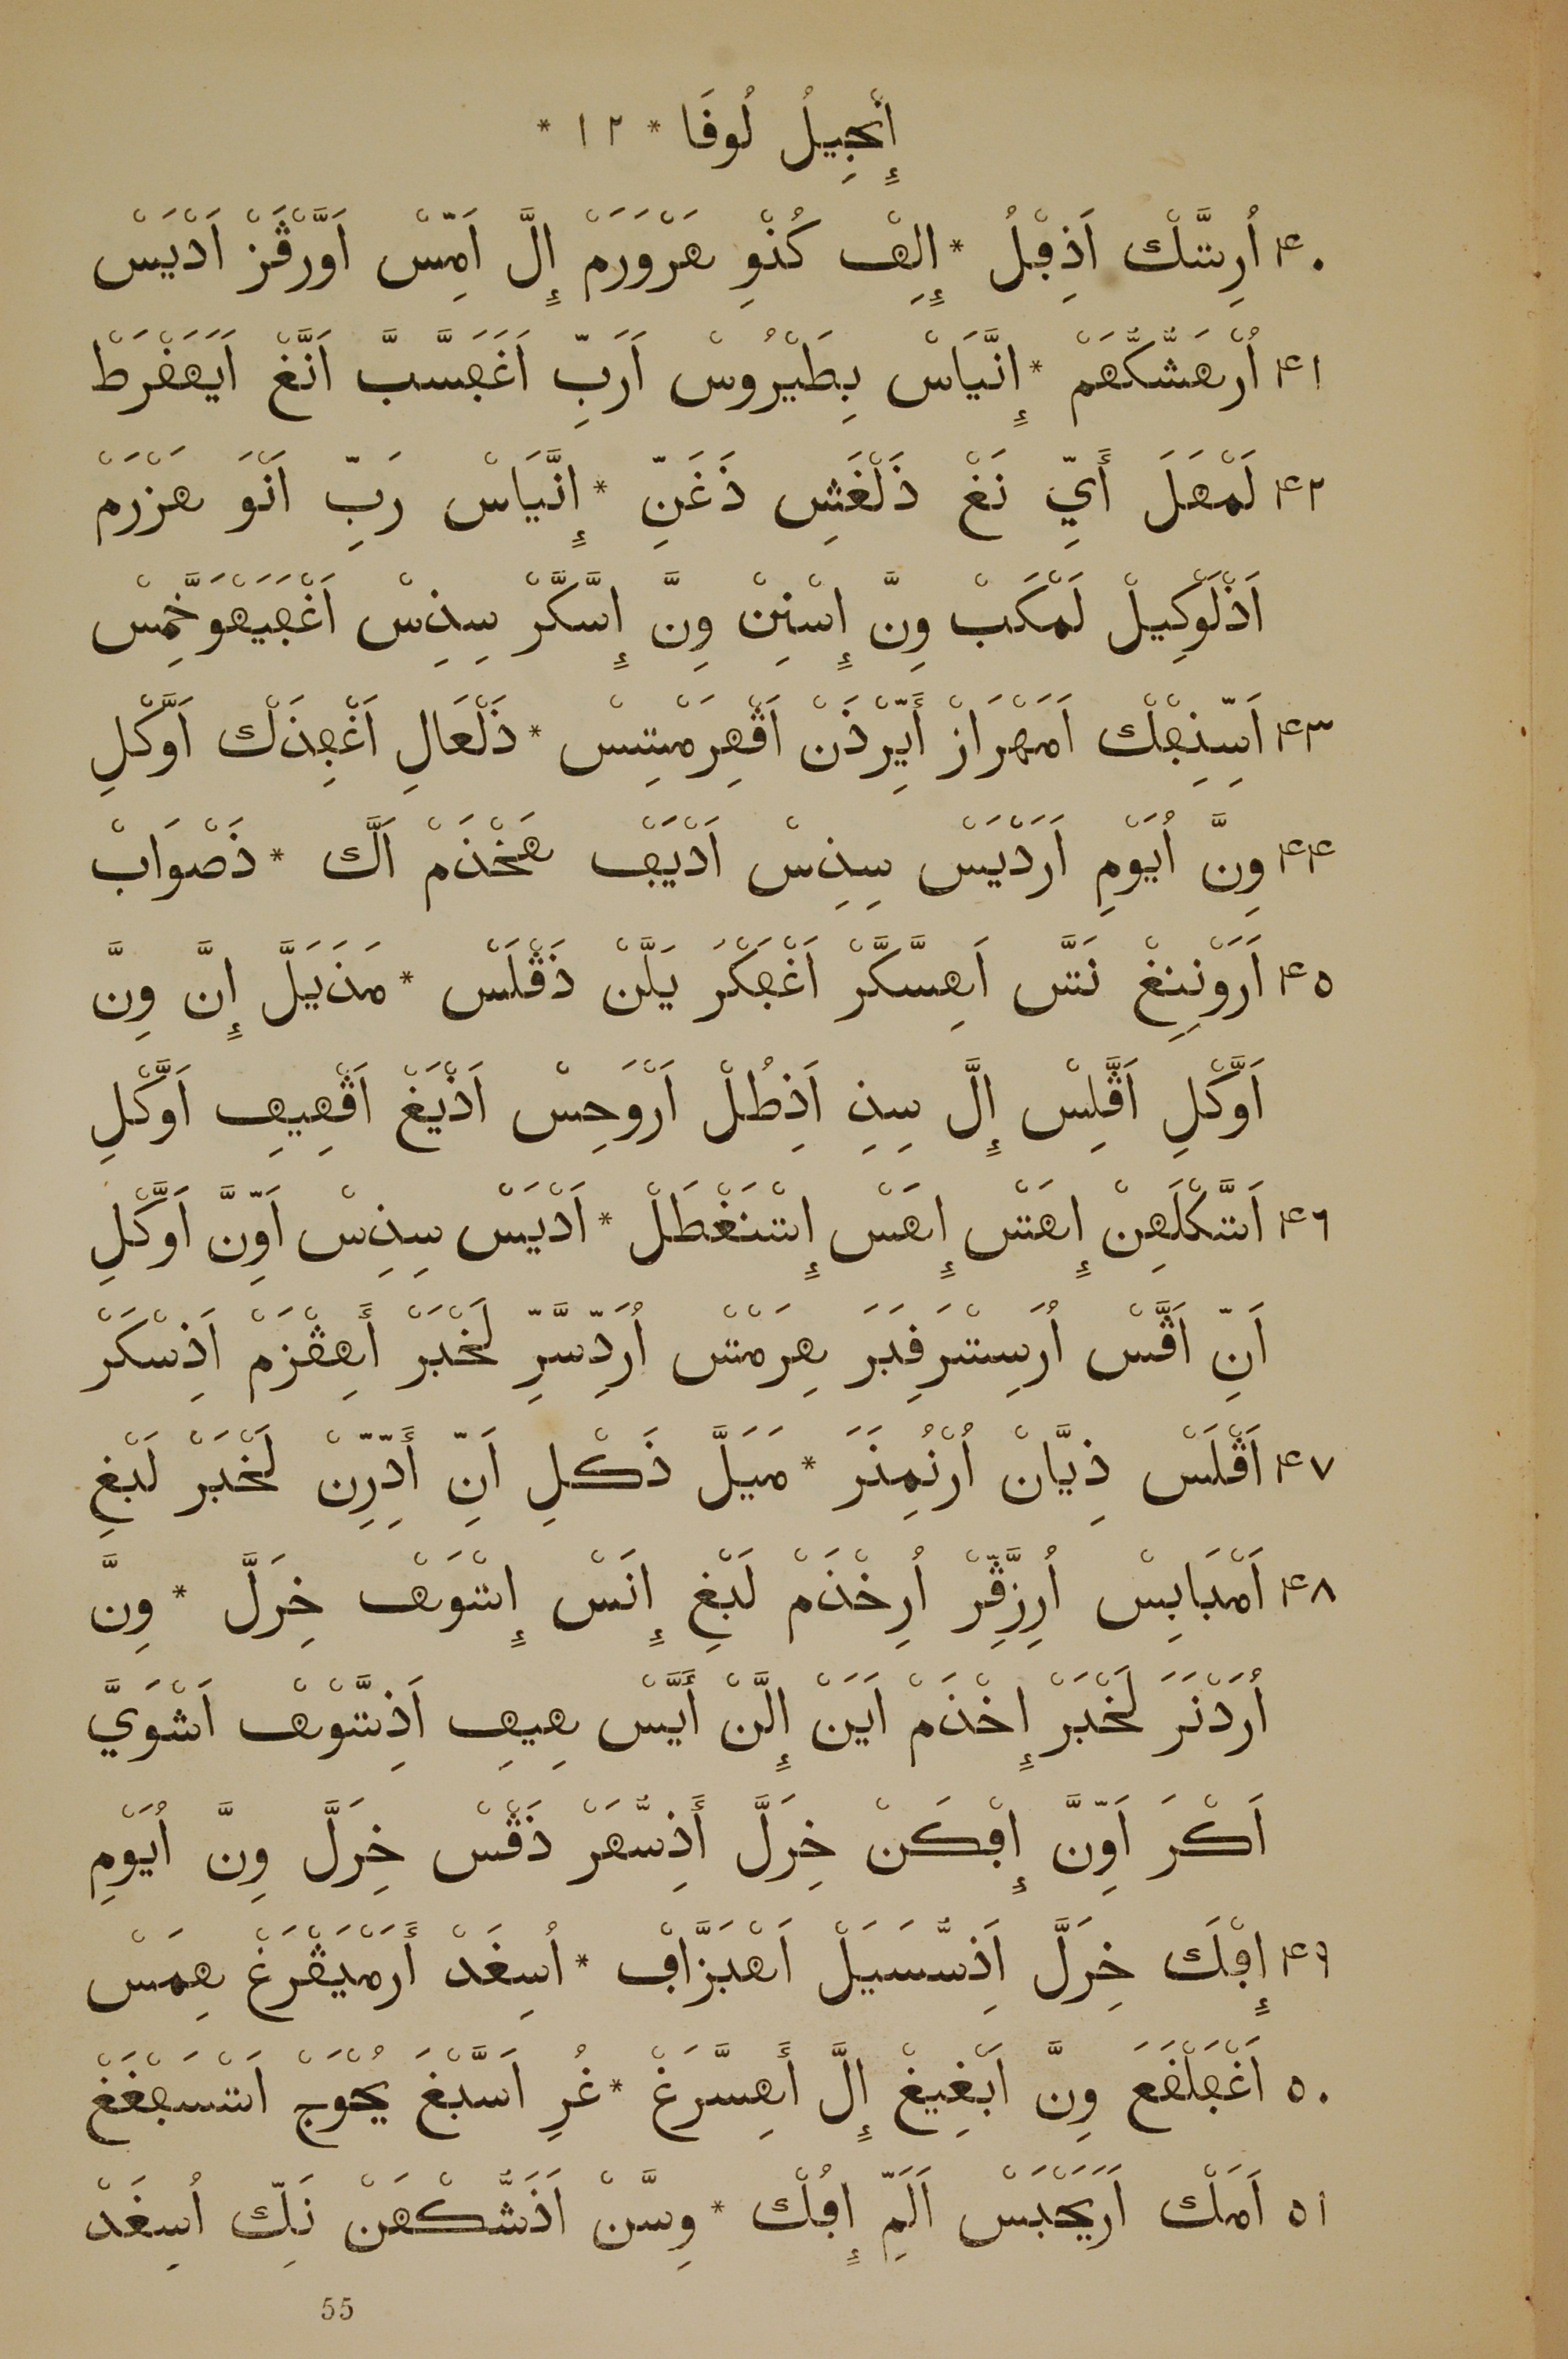 إِنْجِيلُ لُوقَا * ١٢ *
٤٠ اُرِتَّكْ اَذِفْلُ * إِلِفْ كُنْوِ هَرْوَرَمْ إِلَّ اَمِّسْ اَوَّرْڤَزْ اَدْيَسْ
٤١ اُرْهَشُّكُّهَمْ * إِنَّيَاسْ بِطَيْرُوسْ اَرَبِّ اَغَهَسَّبَّ اَنَّغْ اَيَهَفْرَطْ
٤٢ لَمْهَلَ أَيِّ نَغْ ذَلْغَشِ ذَغَنِّ * إِنَّيَاسْ رَبِّ اَنْوَ هَزْرَمْ
اَذْلَوْكِيلْ لَمْكَبْ وِنَّ إِسْنِنْ وِنَّ إِسَّكَّرْ سِذِسْ اَغْهَيَهْوَخَّمِسْ
٤٣ اَسِّنِهْلْكْ اَمَهْرَازْ أَيِّرْذَنْ اَڤْهِرَمْتِسْ * ذَلْعَالِ اَغْهِذَلْكْ اَوَّكْلِ
٤٤ وِنَّ اُيَوْمِ اَرَدْيَسْ سِذِسْ اَدْيَفْ هَخْذَمْ اَلَّكْ * ذَصْوَابْ
٤٥ اَرَوْنِنِغْ نَتَّ اَهِسَّكَّرْ اَغْهَكْرُ يَلَّنْ ذَڤْلَسْ * مَذَيَلَّ إِنَّ وِنَّ
اَوَّكْلِ اَڤَّلِسْ إِلَّ سِذِ اَذِطُلْ اَرْوَحِسْ اَذْيَغْ اَڤْهِيفِ اَوَّكْلِ
٤٦ اَتَّكْلَهِنْ إِهَتْس إِهَسْ إِتْنَغْطَلْ * اَدْيَسْ سِذِسْ اَوِّنَّ اَوَّكْلِ
اَنِّ اَڤَّسْ اُرَسِتْرَفِبَرَ هِرَمْتْس اُرَدِّسَّرِّ لَخْبَرْ أَهِڤْزَمْ اَذِسْكَرْ
٤٧ اَڤْلَسْ ذِيَّانْ اُرْنُمِنَرَ * مَيَلَّ ذَكْلِ اَنِّ أَدِّرِّنْ لَخْبَرْ لَبْغِ
٤٨ اَمْبَابِسْ اُرِزَّڤِّرْ اُرِخْذَمْ لَبْغِ إِنَسْ إِتْوَفْ خِرَلَّ * وِنَّ
اُرَدْنَرَ لَخْبَرْ إِخْذَمْ اَيَنْ إِلَّنْ أَيَّسْ هِيفِ اَذِتَّوْفْ اَشْوَيَّ
اَكْرَ اَوِّنَّ إِفْكَنْ خِرَلَّ أَذِسُّهَرْ ذَڤْسْ خِرَلَّ وِنَّ اُيَوْمِ
٤٩ إِفْلَكَ خِرَلَّ اَذِسُّسَيَلْ اَهْبَزَّافْ * اُسِغَدْ أَرَمْيَڤْرَغْ هِمَسْ
٥٠ اَغْهَلْفَعَ وِنَّ اَبْغِيغْ إِلَّ أَهِسَّرَغْ * غُرِ اَسَّبْغَ يُحْوَجْ اَتْسَبْغَغْ
٥١ اَمَلْكْ اَرَيَحْبَسْ اَلَمِّ إِفُلْكْ * وِسَّنْ اَذَشُّكْهَنْ نَلِّكْ اُسِغَدْ
55